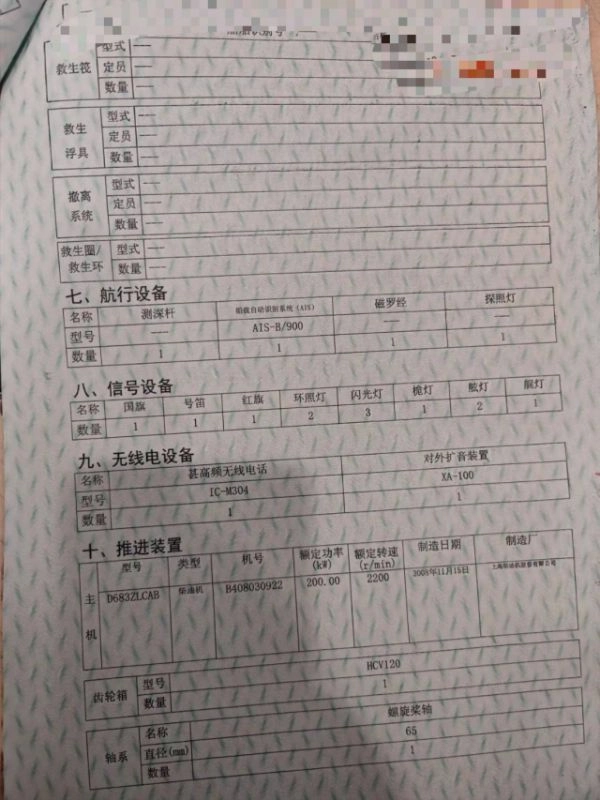 救生筏 型式 ——
定员 ——
数量 ——
救生浮具 型式 ——
定员 ——
数量 ——
撤离系统 型式 ——
定员 ——
数量 ——
救生圈/救生环 型式 ——
数量 ——
七、航行设备
名称 测深杆 船载自动识别系统(AIS) 磁罗经 探照灯
型号 —— AIS-B/900 —— ——
数量 1 1 1 1
八、信号设备
名称 国旗 号笛 红旗 环照灯 闪光灯 桅灯 舷灯 艉灯
数量 1 1 1 2 3 1 2 1
九、无线电设备
名称 甚高频无线电话 对外扩音装置
型号 IC-M304 XA-100
数量 1 1
十、推进装置
主机 型号 类型 机号 额定功率(kW) 额定转速(r/min) 制造日期 制造厂
D683ZLCAB 柴油机 B408030922 200.00 2200 2008年11月15日 上海柴油机股份有限公司
齿轮箱 型号 HCV120
数量 1
轴系 名称 螺旋桨轴
直径(mm) 65
数量 1